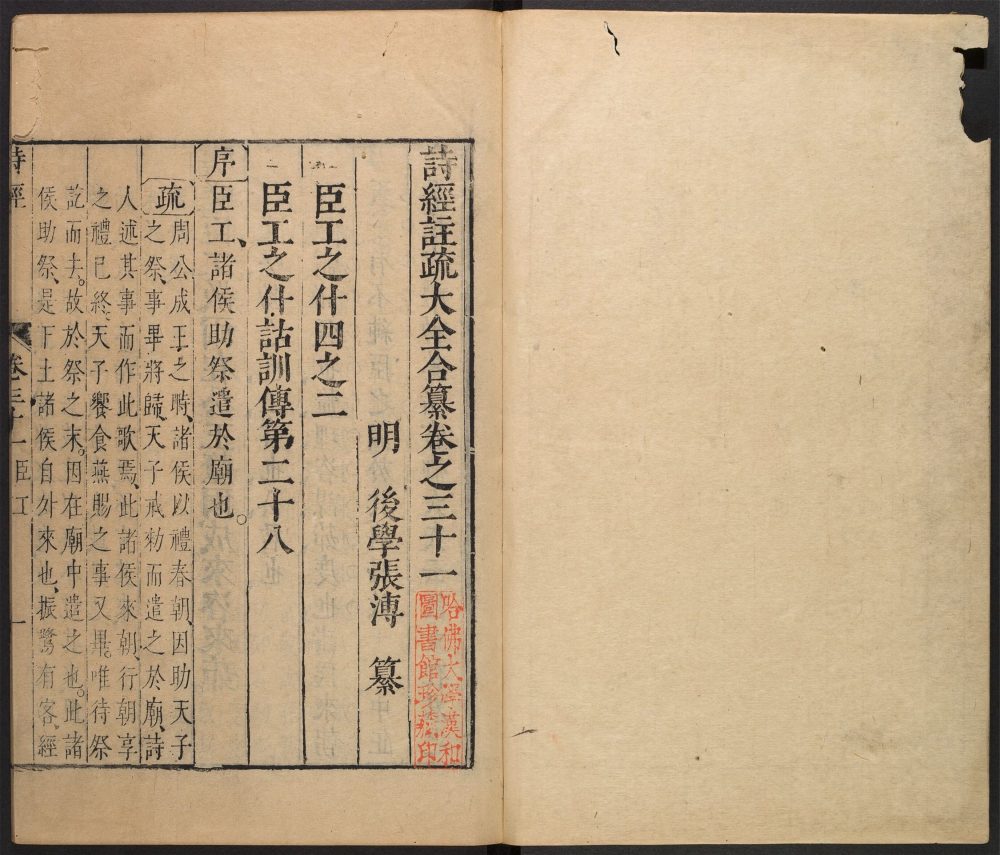 詩經註疏大全合纂卷之三十一
哈佛大學漢和
圖書館珍藏印
明 後學張溥 纂
臣工之什四之二
臣工之什詁訓傳第二十八
序 臣工、諸侯助祭遣於廟也。
疏 周公成王之時、諸侯以禮春朝、因助天子
之祭、事畢將歸、天子戒勑而遣之於廟、詩
人述其事而作此歌焉、此諸侯來朝、行朝享
之禮已終、天子饗食燕賜之事又畢。唯待祭
訖而去。故於祭之末。因在廟中遣之也。此諸
侯助祭、是下土諸侯自外來也、振鷺有客、經
詩經 卷三十一 臣工 一